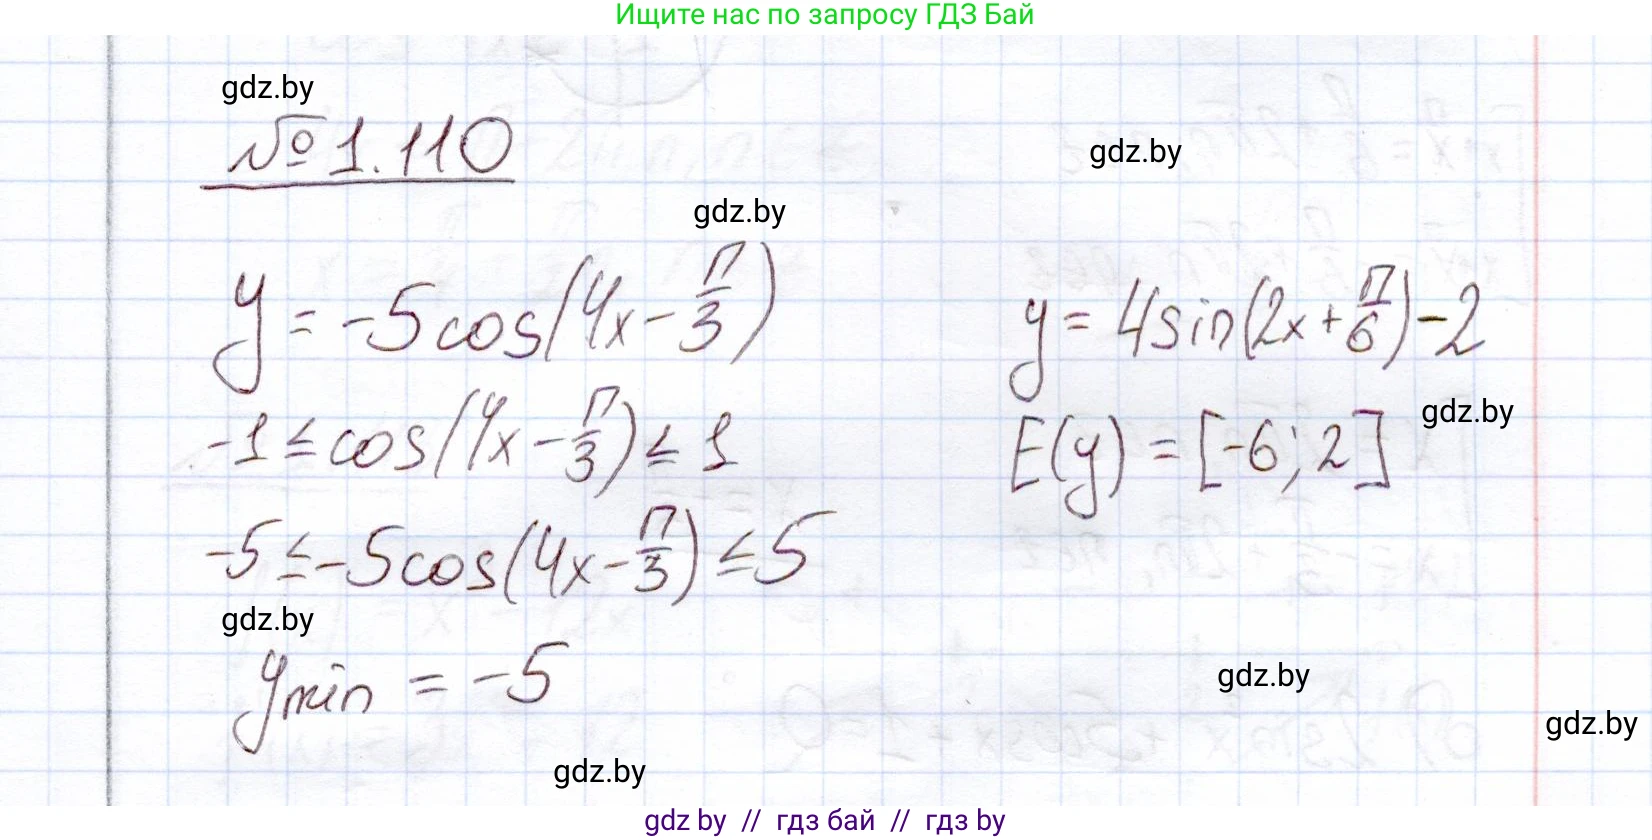 Ищите нас по запросу ГДЗ Бай
gdz.by
№ 1.110
gdz.by
gdz.by
y = -5cos(4x - π/3)
-1 ≤ cos(4x - π/3) ≤ 1
-5 ≤ -5cos(4x - π/3) ≤ 5
gdz.by
y min = -5
gdz.by
y = 4sin(2x + π/6) - 2
gdz.by
E(y) = [-6; 2]
gdz.by
gdz.by
gdz by // гдз бай // гдз by